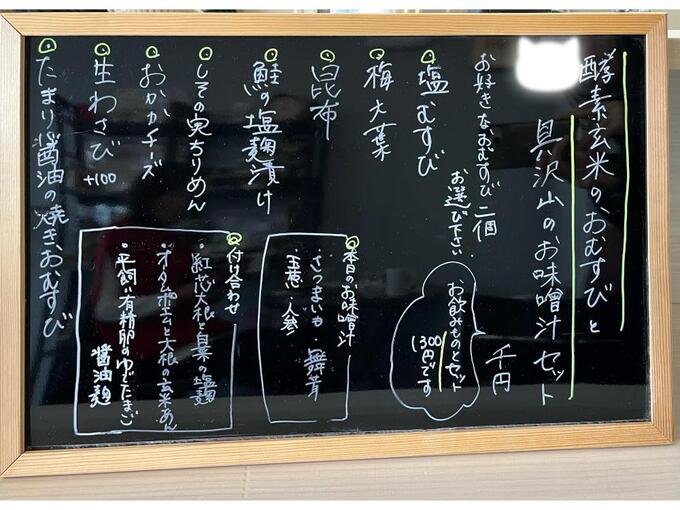 酵素玄米のおむすびと
具沢山のお味噌汁セット
千円
お好きなおむすび二個
お選び下さい
お飲みものとセット
1,300円です
塩むすび
梅大葉
昆布
鮭の塩麹漬け
しその実ちりめん
おかかチーズ
生わさび +100
たまり醤油の焼きおむすび
本日のお味噌汁
・さつまいも 舞茸
・玉葱・人参
付け合わせ
・紅芯大根と白菜の塩麹
・オータムポエムと大根の玄米あん
・平飼い有精卵のゆでたまご
醤油麹